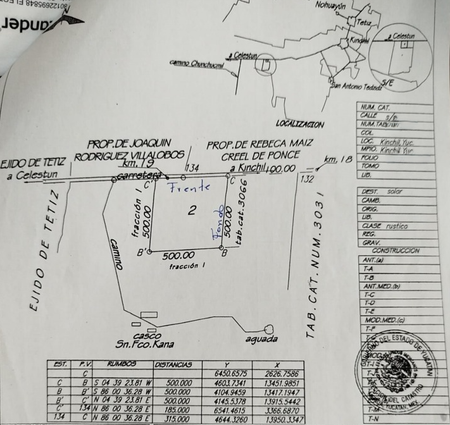 Nohuayún
Tetiz
Kinchil
Celestun
Celestun
camino Chunchucmil
San Antonio Tedzidz
S/E
LOCALIZACION
PROP. DE JOAQUIN
RODRIGUEZ VILLALOBOS
PROP. DE REBECA MAIZ
CREEL DE PONCE
EJIDO DE TETIZ
a Celestun
km. 19
carretera
134
a Kinchil
100.00
132
km. 18
C'
Frente
C
fracción 1
500.00
2
Fondo
500.00
tab. cat. 3066
B'
500.00
B
fracción 1
EJIDO DE TETIZ
camino
TAB. CAT. NUM. 303
casco
Sn. Fco. Kana
aguada
NUM. CAT.
CALLE s/e
NUM. TAB.
COL.
LOC. Kinchil, Yuc.
MPIO. Kinchil, Yuc.
FOLIO
TOMO
LIB.
DEST. solar
CAMB.
ORIG.
UB.
CLASE rustico
REG.
GRAV.
CONSTRUCCION
ANT.(a)
T-A
T-B
ANT. MED.(b)
T-C
T-D
T-E
MOD. MED.(c)
T-F
EST. P.V. RUMBOS DISTANCIAS Y X
C 6450.6575 2626.7586
C B S 04 39 23.81 W 500.000 4603.7341 13451.9851
B B' S 86 00 36.28 W 500.000 4104.9459 13417.1947
B' C' N 04 39 23.81 E 500.000 4145.5378 13915.5442
C' 134 N 86 00 36.28 E 185.000 6541.4615 3366.6870
134 C N 86 00 36.28 E 315.000 4644.3260 13950.3347
T-M
T-N